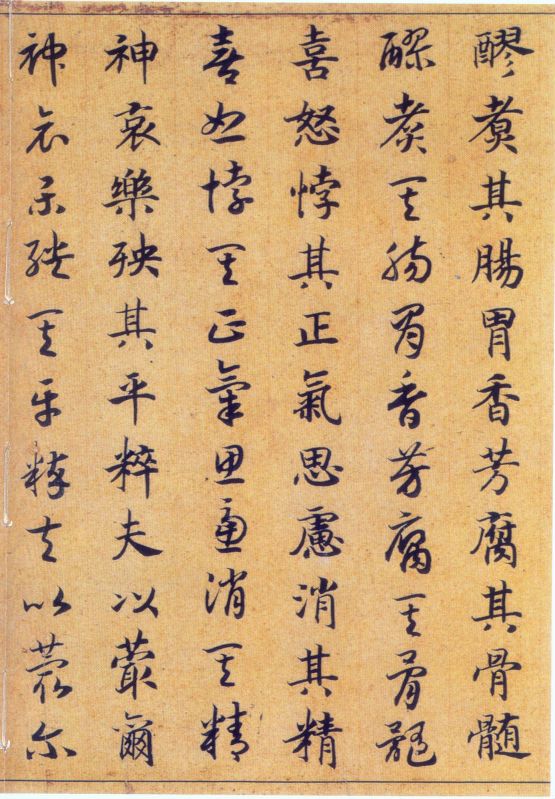 醪煑其腸胃香芳腐其骨髓
醪煑其腸胃香芳腐其骨髓
喜怒悖其正氣思慮消其精
喜怒悖其正氣思慮消其精
神哀樂殃其平粹夫以蕞爾
神哀樂殃其平粹夫以蕞尔